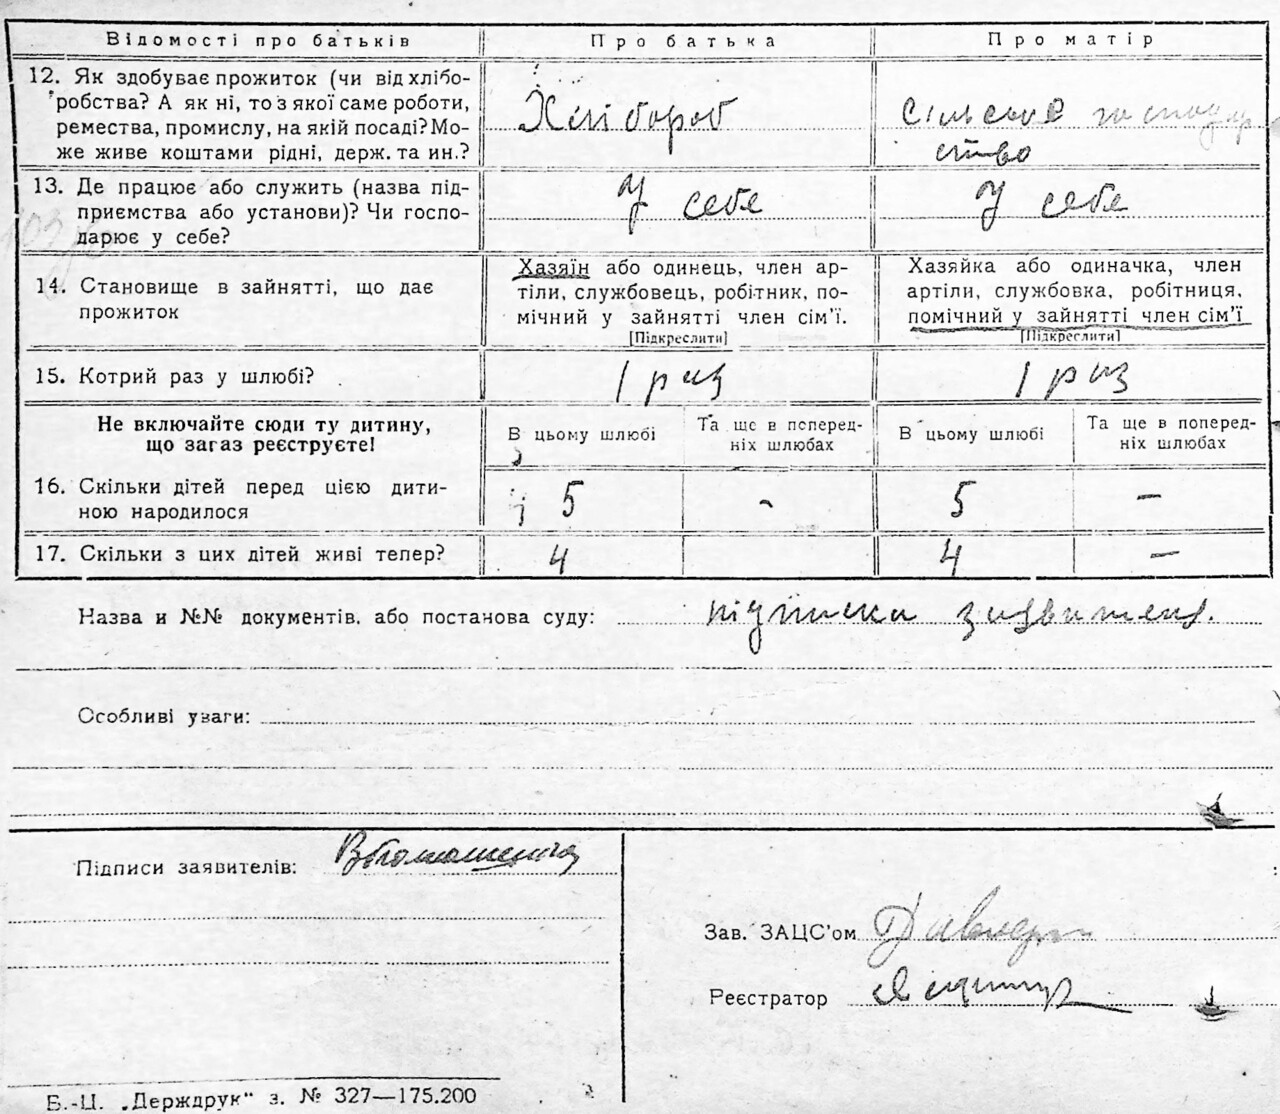 Відомості про батьків Про батька Про матір
12. Як здобуває прожиток (чи від хлібо-
робства? А як ні, то з якої саме роботи,
ремества, промислу, на якій посаді? Мо-
же живе коштами рідні, держ. та ин.?
Хлібороб
Сільське господар
ство
13. Де працює або служить (назва під-
приємства або установи)? Чи госпо-
дарює у себе?
У себе
У себе
14. Становище в зайнятті, що дає
прожиток
Хазяїн або одинець, член ар-
тіли, службовець, робітник, по-
мічний у зайнятті член сім'ї.
[Підкреслити]
Хазяйка або одиначка, член
артіли, службовка, робітниця,
помічний у зайнятті член сім'ї
[Підкреслити]
15. Котрий раз у шлюбі?
1 раз
1 раз
Не включайте сюди ту дитину,
що загаз реєструєте!
В цьому шлюбі
Та ще в поперед-
ніх шлюбах
В цьому шлюбі
Та ще в поперед-
ніх шлюбах
16. Скільки дітей перед цією дити-
ною народилося
5 - 5 -
17. Скільки з цих дітей живі тепер?
4 4 -
Назва и №№ документів, або постанова суду: підписка
Особливі уваги:
Підписи заявителів:
Зав. ЗАЦС'ом
Реєстратор
Б.-Ц. „Держдрук“ з. № 327—175.200